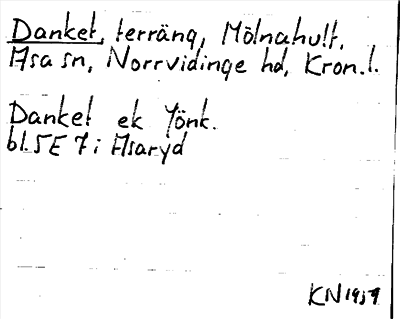 Danket, terräng, Mölnahult,
Asa sn, Norrvidinge hd, Kron.l.
Danket ek Jönk.
bl. 5E 7i Asaryd
KN 1959